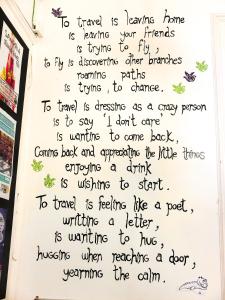 To travel is leaving home
is leaving your friends
is trying to fly,
to fly is discovering other branches
roaming paths
is trying to change.
To travel is dressing as a crazy person
is to say 'I don't care'
is wanting to come back,
Coming back and appreciating the little things
enjoying a drink
is wishing to start.
To travel is feeling like a poet,
writting a letter,
is wanting to hug,
hugging when reaching a door,
yearning the calm.